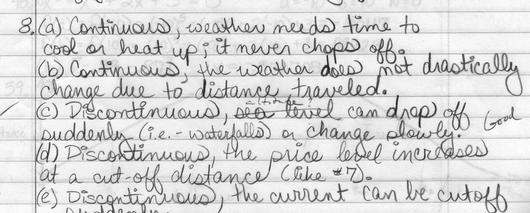 8. (a) Continuous, weather needs time to
cool or heat up; it never chops off.
(b) Continuous, the weather does not drastically
change due to distance traveled.
altitude?
(c) Discontinuous, sea level can drop off
suddenly (i.e. - waterfalls) or change slowly. Good
(d) Discontinuous, the price level increases
at a cut-off distance (like #7).
(e) Discontinuous, the current can be cutoff
suddenly